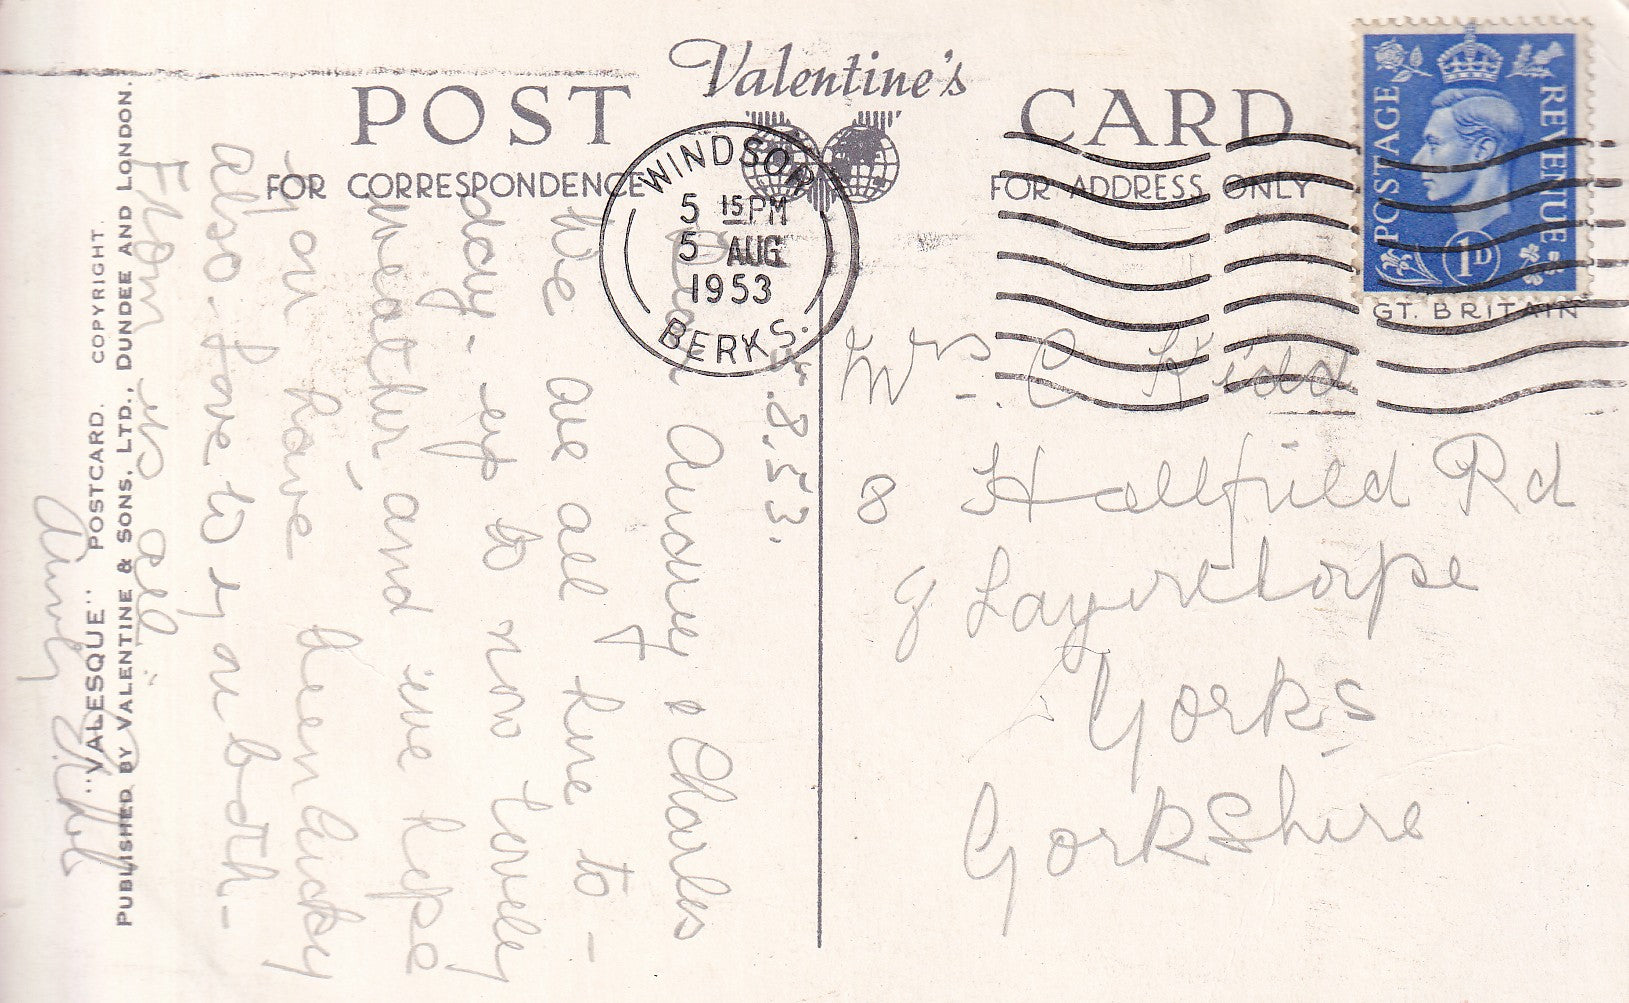 Valentine's
POST CARD
FOR CORRESPONDENCE
FOR ADDRESS ONLY
WINDSOR
5 15 PM
5 AUG
1953
BERKS.
POSTAGE
REVENUE
1D
GT. BRITAIN
8.53.
Dear Audrey & Charles
We are all here to-
day - up to now lovely
weather and we hope
you have been lucky
also - love to you both -
From us all
"VALESQUE" POSTCARD. COPYRIGHT.
PUBLISHED BY VALENTINE & SONS, LTD., DUNDEE AND LONDON.
Mrs. C Kidd
8 Hallfield Rd
Layerthorpe
York
Yorkshire